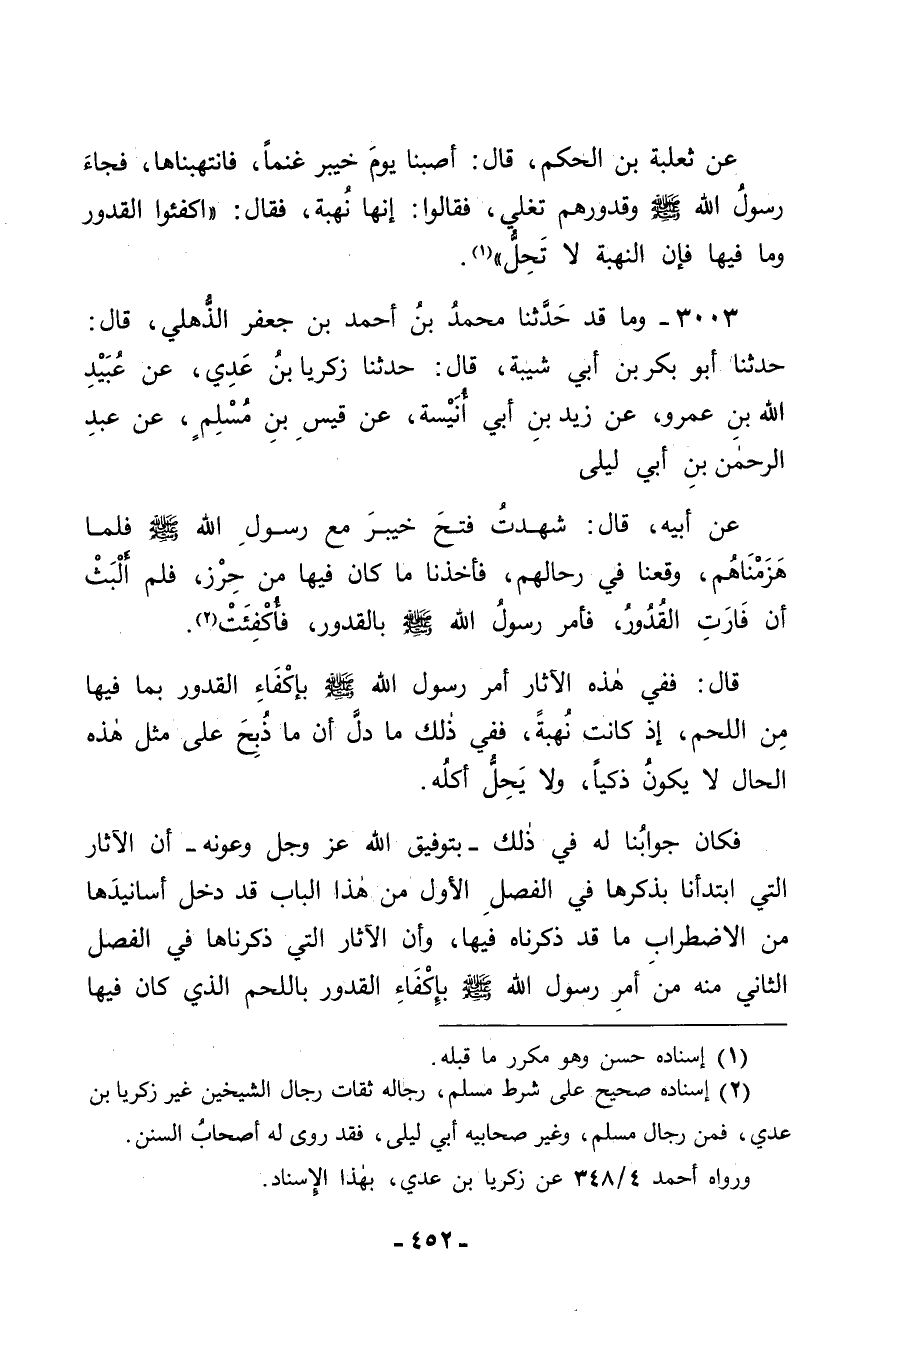 عن ثعلبة بن الحكم، قال: أصبنا يومَ خيبر غنماً، فانتهبناها، فجاءَ
رسولُ الله ﷺ وقدورهم تغلي، فقالوا: إنها نُهبة، فقال: «اكفئوا القدور
وما فيها فإن النهبة لا تَحِلُّ»(١).
٣٠٠٣ـ وما قد حَدَّثنا محمدُ بنُ أحمد بن جعفر الذُّهلي، قال:
حدثنا أبو بكر بن أبي شيبة، قال: حدثنا زكريا بنُ عَدِي، عن عُبَيْدِ
الله بنِ عمرو، عن زيد بنِ أبي أُنَيْسة، عن قيسِ بنِ مُسْلِمٍ، عن عبدِ
الرحمٰن بنِ أبي ليلى
عن أبيه، قال: شهدتُ فتحَ خيبرَ مع رسولِ الله ﷺ فلما
هَزَمْنَاهُم، وقعنا في رحالهم، فأخذنا ما كان فيها من حِرْز، فلم أَلْبَثْ
أن فَارَتِ القُدُورُ، فأمر رسولُ الله ﷺ بالقدور، فأُكْفِئَتْ(٢).
قال: ففي هٰذه الآثار أمر رسول الله ﷺ بإكْفَاءِ القدور بما فيها
مِن اللحم، إذ كانت نُهبةً، ففي ذٰلك ما دلَّ أن ما ذُبِحَ على مثل هٰذه
الحال لا يكونُ ذكياً، ولا يَحِلُّ أكلُه.
فكان جوابُنا له في ذٰلك ـ بتوفيق الله عز وجل وعونه ـ أن الآثار
التي ابتدأنا بذكرها في الفصلِ الأول من هٰذا الباب قد دخل أسانيدَها
من الاضطرابِ ما قد ذكرناه فيها، وأن الآثار التي ذكرناها في الفصل
الثاني منه من أمرِ رسول الله ﷺ بإِكْفَاءِ القدور باللحم الذي كان فيها
(١) إسناده حسن وهو مكرر ما قبله.
(٢) إسناده صحيح على شرط مسلم، رجاله ثقات رجال الشيخين غير زكريا بن
عدي، فمن رجال مسلم، وغير صحابيه أبي ليلى، فقد روى له أصحابُ السنن.
ورواه أحمد ٣٤٨/٤ عن زكريا بن عدي، بهٰذا الإِسناد.
ـ ٤٥٢ ـ